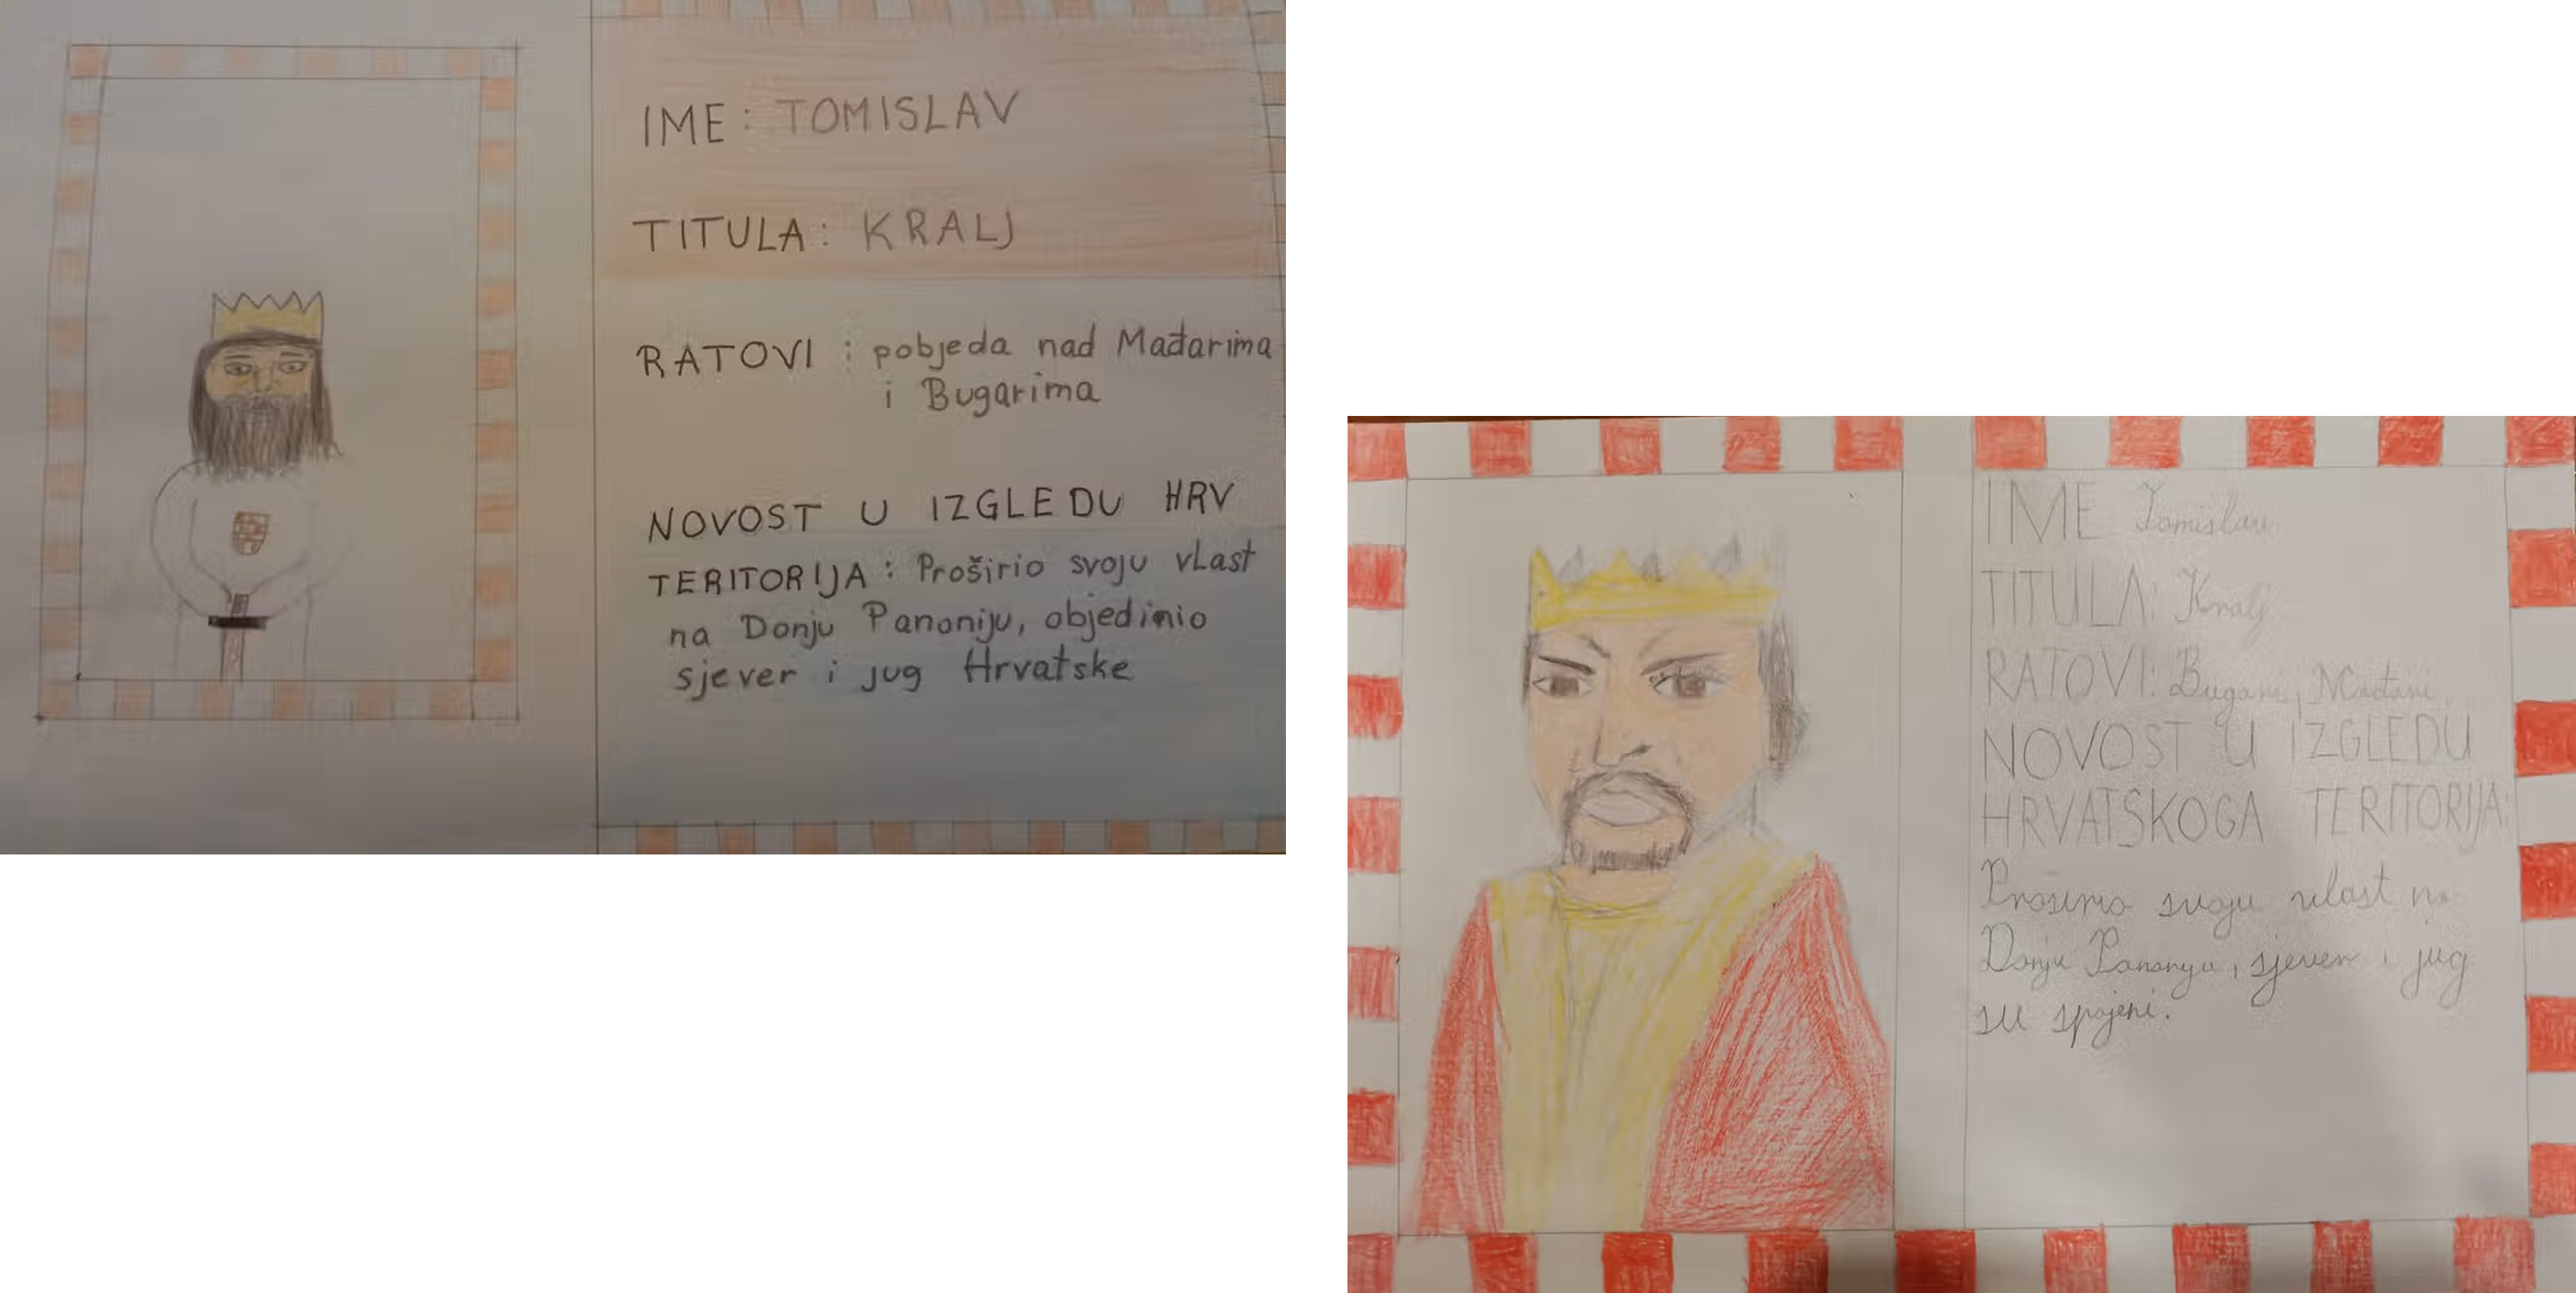 IME: TOMISLAV
TITULA: KRALJ
RATOVI: pobjeda nad Mađarima
i Bugarima
NOVOST U IZGLEDU HRV
TERITORIJA: Proširio svoju vlast
na Donju Panoniju, objedinio
sjever i jug Hrvatske
IME Tomislav
TITULA: Kralj
RATOVI: Bugari, Mađari
NOVOST U IZGLEDU
HRVATSKOGA TERITORIJA:
Proširio svoju vlast na
Donju Panoniju, sjever i jug
su spojeni.